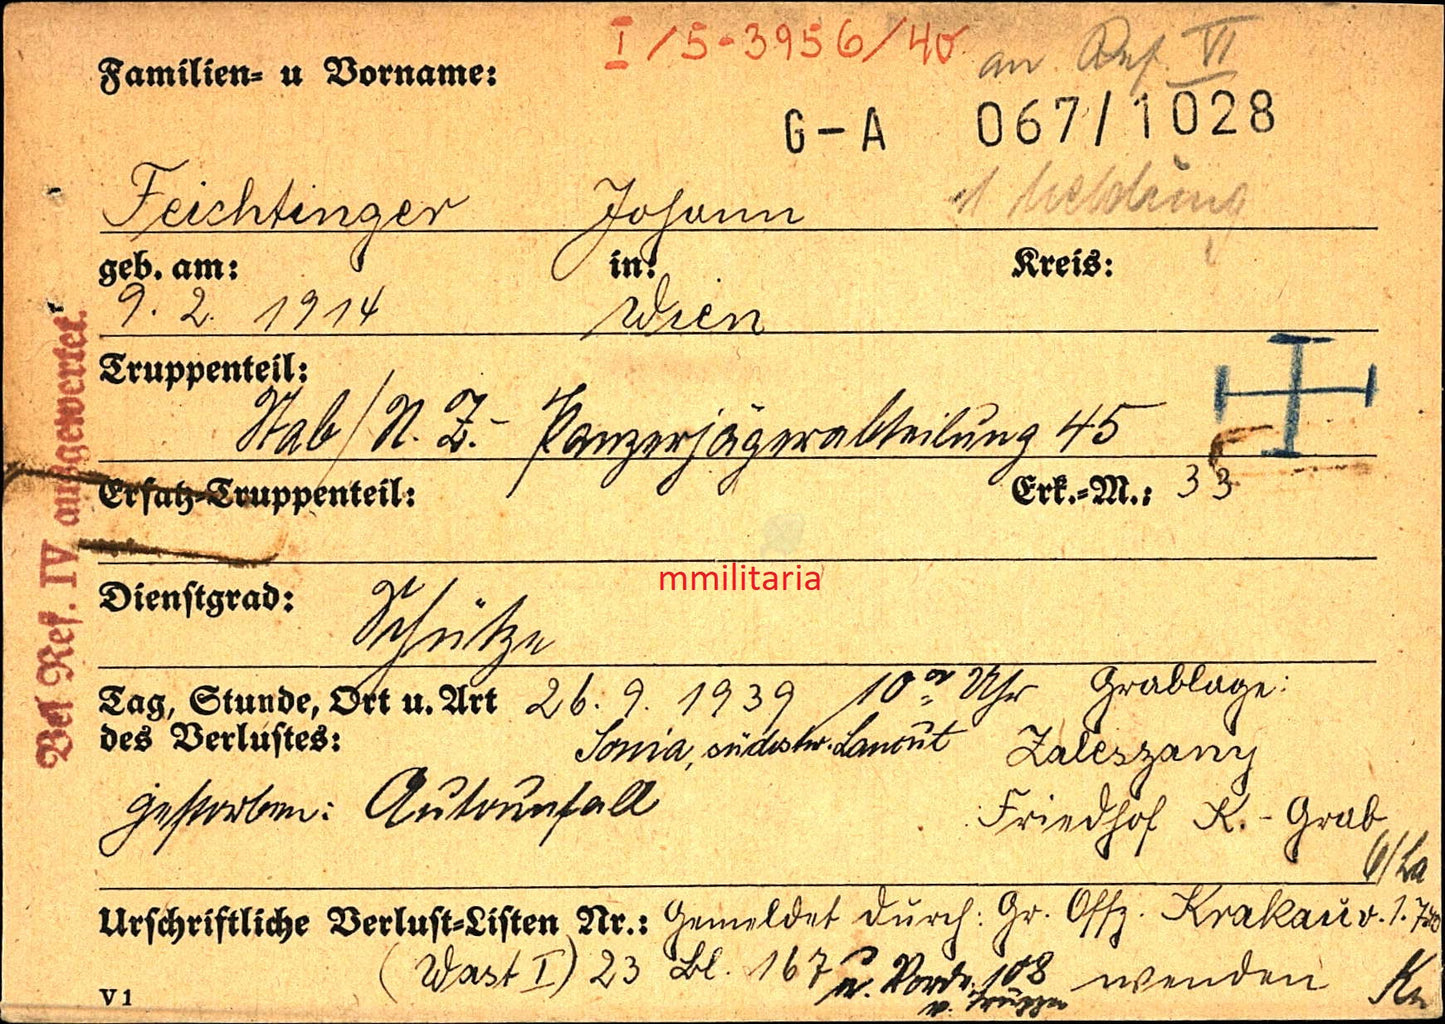 I/5-3956/40 an Ref. VI
Familien= u Vorname:
G-A 067/1028
Feichtinger Johann Meldung
geb. am: in: Kreis:
9. 2. 1914 Wien
Truppenteil:
Stab/N.Z.- Panzerjägerabteilung 45
Ersatz-Truppenteil: Erk.=M.: 33
mmilitaria
Dienstgrad: Schütze
Tag, Stunde, Ort u. Art 26. 9. 1939 10 Uhr Grablage:
des Verlustes: Zaleszany
gestorben: Autounfall Friedhof K.-Grab
Urschriftliche Verlust=Listen Nr.: Gemeldet durch: Gr. Offz. Krakau v. 1.
(Wast I) 23 Bl. 167 u. 108 wenden
v. Truppe
V 1
Bei Ref. IV ausgewertet.